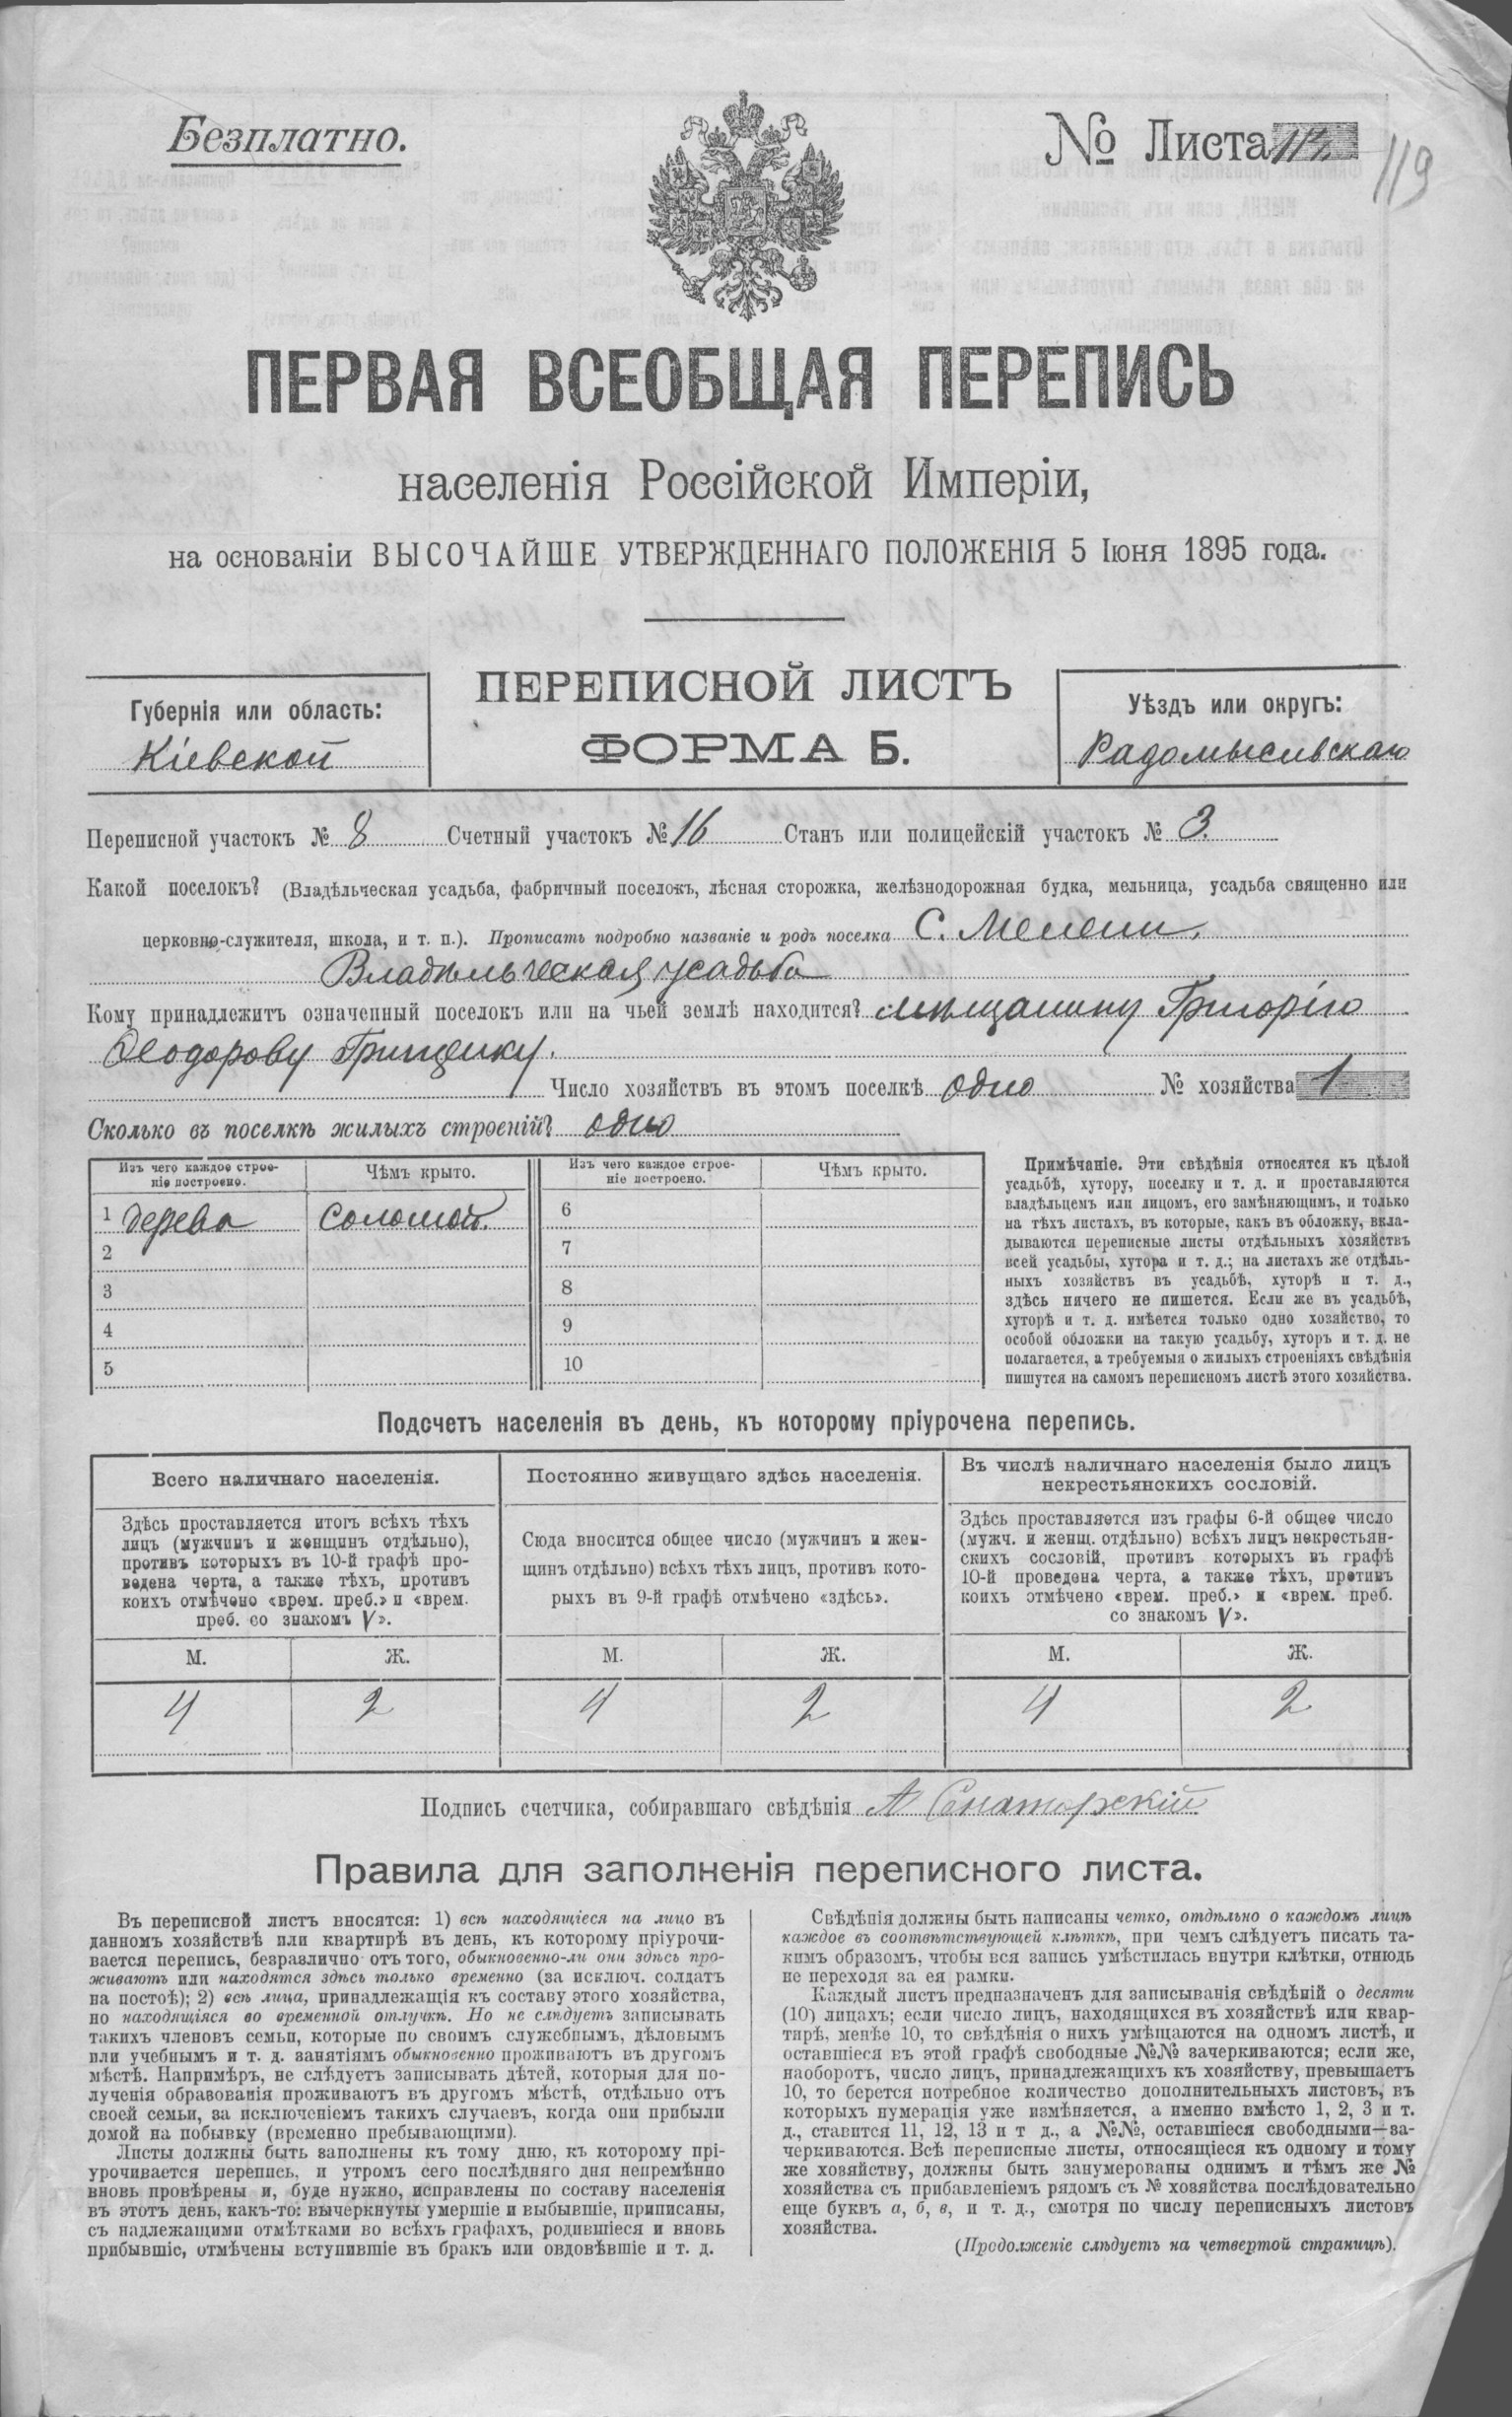 Безплатно.
№ Листа
119
ПЕРВАЯ ВСЕОБЩАЯ ПЕРЕПИСЬ
населенія Россійской Имперіи,
на основаніи ВЫСОЧАЙШЕ УТВЕРЖДЕННАГО ПОЛОЖЕНІЯ 5 Іюня 1895 года.
Губернія или область:
Кіевской
ПЕРЕПИСНОЙ ЛИСТЪ
ФОРМА Б.
Уѣздъ или округъ:
Радомысльскаго
Переписной участокъ № 8 Счетный участокъ № 16 Станъ или полицейскій участокъ № 3.
Какой поселокъ? (Владѣльческая усадьба, фабричный поселокъ, лѣсная сторожка, желѣзнодорожная будка, мельница, усадьба священно или
церковно-служителя, школа, и т. п.). Прописать подробно названіе и родъ поселка С. Мелени,
Владѣльческая усадьба
Кому принадлежитъ означенный поселокъ или на чьей землѣ находится? мѣщанину Григорію
Ѳеодорову Грищенку.
Число хозяйствъ въ этомъ поселкѣ одно № хозяйства 1
Сколько въ поселкѣ жилыхъ строеній? одно
Изъ чего каждое строе-
ніе построено.
Чѣмъ крыто.
Изъ чего каждое строе-
ніе построено.
Чѣмъ крыто.
1 дерева соломой.
2
3
4
5
6
7
8
9
10
Примѣчаніе. Эти свѣдѣнія относятся къ цѣлой
усадьбѣ, хутору, поселку и т. д. и проставляются
владѣльцемъ или лицомъ, его замѣняющимъ, и только
на тѣхъ листахъ, въ которые, какъ въ обложку, вкла-
дываются переписные листы отдѣльныхъ хозяйствъ
всей усадьбы, хутора и т. д.; на листахъ же отдѣль-
ныхъ хозяйствъ въ усадьбѣ, хуторѣ и т. д.,
здѣсь ничего не пишется. Если же въ усадьбѣ,
хуторѣ и т. д. имѣется только одно хозяйство, то
особой обложки на такую усадьбу, хуторъ и т. д. не
полагается, а требуемыя о жилыхъ строеніяхъ свѣдѣнія
пишутся на самомъ переписномъ листѣ этого хозяйства.
Подсчетъ населенія въ день, къ которому пріурочена перепись.
Всего наличнаго населенія.
Здѣсь проставляется итогъ всѣхъ тѣхъ
лицъ (мужчинъ и женщинъ отдѣльно),
противъ которыхъ въ 10-й графѣ про-
ведена черта, а также тѣхъ, противъ
коихъ отмѣчено «врем. преб.» и «врем.
преб. со знакомъ V».
Постоянно живущаго здѣсь населенія.
Сюда вносится общее число (мужчинъ и жен-
щинъ отдѣльно) всѣхъ тѣхъ лицъ, противъ кото-
рыхъ въ 9-й графѣ отмѣчено «здѣсь».
Въ числѣ наличнаго населенія было лицъ
некрестьянскихъ сословій.
Здѣсь проставляется изъ графы 6-й общее число
(мужч. и женщ. отдѣльно) всѣхъ лицъ некрестьян-
скихъ сословій, противъ которыхъ въ графѣ
10-й проведена черта, а также тѣхъ, противъ
коихъ отмѣчено «врем. преб.» и «врем. преб.
со знакомъ V».
М. Ж. М. Ж. М. Ж.
4 2 4 2 4 2
Подпись счетчика, собиравшаго свѣдѣнія А Сенаторскій
Правила для заполненія переписного листа.
Въ переписной листъ вносятся: 1) всѣ находящіеся на лицо въ
данномъ хозяйствѣ или квартирѣ въ день, къ которому пріурочи-
вается перепись, безразлично отъ того, обыкновенно-ли они здѣсь про-
живаютъ или находятся здѣсь только временно (за исключ. солдатъ
на постоѣ); 2) всѣ лица, принадлежащія къ составу этого хозяйства,
но находящіяся во временной отлучкѣ. Но не слѣдуетъ записывать
такихъ членовъ семьи, которые по своимъ служебнымъ, дѣловымъ
или учебнымъ и т. д. занятіямъ обыкновенно проживаютъ въ другомъ
мѣстѣ. Напримѣръ, не слѣдуетъ записывать дѣтей, которыя для по-
лученія образованія проживаютъ въ другомъ мѣстѣ, отдѣльно отъ
своей семьи, за исключеніемъ такихъ случаевъ, когда они прибыли
домой на побывку (временно пребывающими).
Листы должны быть заполнены къ тому дню, къ которому прі-
урочивается перепись, и утромъ сего послѣдняго дня непремѣнно
вновь провѣрены и, буде нужно, исправлены по составу населенія
въ этотъ день, какъ-то: вычеркнуты умершіе и выбывшіе, приписаны,
съ надлежащими отмѣтками во всѣхъ графахъ, родившіеся и вновь
прибывшіе, отмѣчены вступившіе въ бракъ или овдовѣвшіе и т. д.
Свѣдѣнія должны быть написаны четко, отдѣльно о каждомъ лицѣ
каждое въ соотвѣтствующей клѣткѣ, при чемъ слѣдуетъ писать та-
кимъ образомъ, чтобы вся запись умѣстилась внутри клѣтки, отнюдь
не переходя за ея рамки.
Каждый листъ предназначенъ для записыванія свѣдѣній о десяти
(10) лицахъ; если число лицъ, находящихся въ хозяйствѣ или квар-
тирѣ, менѣе 10, то свѣдѣнія о нихъ умѣщаются на одномъ листѣ, и
оставшіеся въ этой графѣ свободные №№ зачеркиваются; если же,
наоборотъ, число лицъ, принадлежащихъ къ хозяйству, превышаетъ
10, то берется потребное количество дополнительныхъ листовъ, въ
которыхъ нумерація уже измѣняется, а именно вмѣсто 1, 2, 3 и т.
д., ставится 11, 12, 13 и т д., а №№, оставшіеся свободными—за-
черкиваются. Всѣ переписные листы, относящіеся къ одному и тому
же хозяйству, должны быть занумерованы однимъ и тѣмъ же №
хозяйства съ прибавленіемъ рядомъ съ № хозяйства послѣдовательно
еще буквъ а, б, в, и т. д., смотря по числу переписныхъ листовъ
хозяйства.
(Продолженіе слѣдуетъ на четвертой страницѣ).